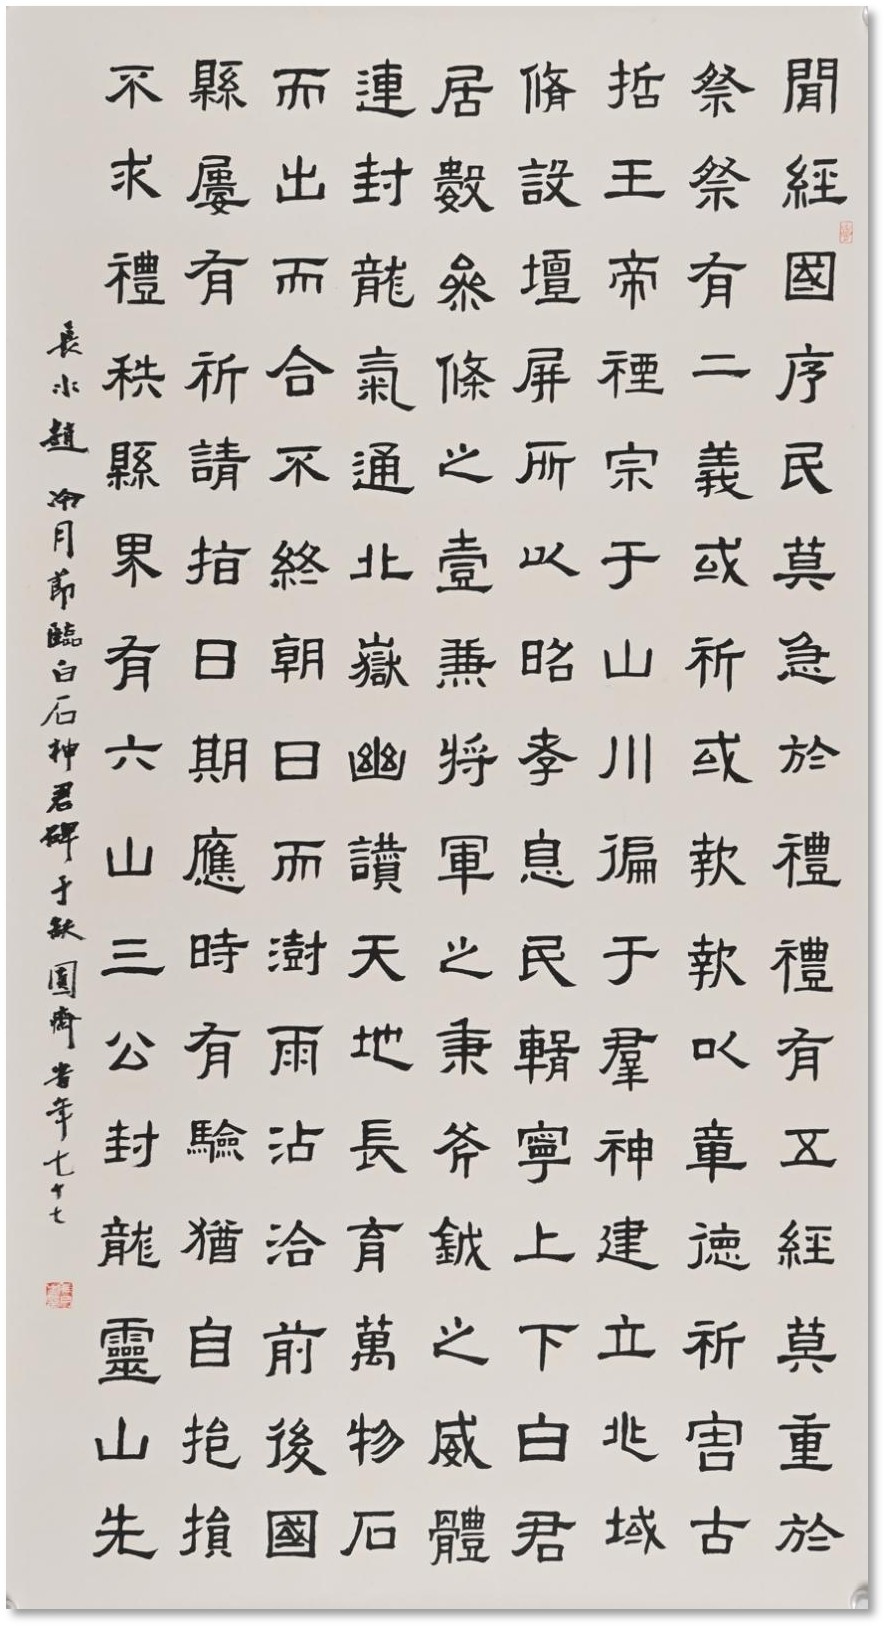 聞經國序民莫急於禮禮有五經莫重於
祭祭有二義或祈或報報以章德祈害古
哲王帝禋宗于山川徧于羣神建立兆域
脩設壇屏所以昭孝息民輯寧上下白君
居數參條之壹兼將軍之秉斧鉞之威體
連封龍氣通北嶽幽讚天地長育萬物石
而出而合不終朝日而澍雨沾洽前後國
縣屢有祈請指日期應時有驗猶自挹損
不求禮秩縣界有六山三公封龍靈山先
長水趙冷月節臨白石神君碑于缺圓齋昔年七十七